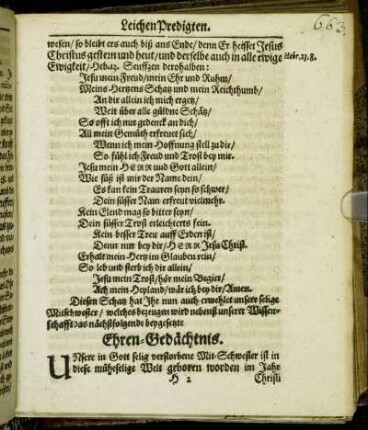 663.
Leichen Predigten.
wesen/ so bleibt ers auch biß ans Ende/ denn Er heisset Jesus
Christus gestern und heut/ und derselbe auch in alle ewige Hebr.13.8.
Ewigkeit/ Heb.13. Seuffzen derohalben:
Jesu mein Freud/ mein Ehr und Ruhm/
Meins Hertzens Schatz und mein Reichthumb/
An dir allein ich mich ergetz/
Weit über alle güldne Schätz/
So offt ich nur gedenck an dich/
All mein Gemüth erfreuet sich/
Wenn ich mein Hoffnung stell zu dir/
So fühl ich Freud und Trost bey mir.
Jesu mein HERR und Gott allein/
Wie süß ist mir der Name dein/
Es kan kein Trauren seyn so schwer/
Dein süsser Nam erfreut vielmehr.
Kein Elend mag so bitter seyn/
Dein süsser Trost erleichterts fein.
Kein besser Treu auff Erden ist/
Denn nur bey dir/ HERR Jesu Christ.
Erhalt mein Hertz im Glauben rein/
So leb und sterb ich dir allein/
Jesu mein Trost/ hör mein Begier/
Ach mein Heyland/ wär ich bey dir/ Amen.
Diesen Schatz hat Ihr nun auch erwehlet unsere selige
Mitschwester/ welches bezeugen wird nebenst unserer Wissen-
schafft das nächstfolgende beygesetzte
Ehren-Gedächtnis.
UNsere in Gott selig verstorbene Mit-Schwester ist in
diese müheselige Welt geboren worden im Jahr
H 2 Christi